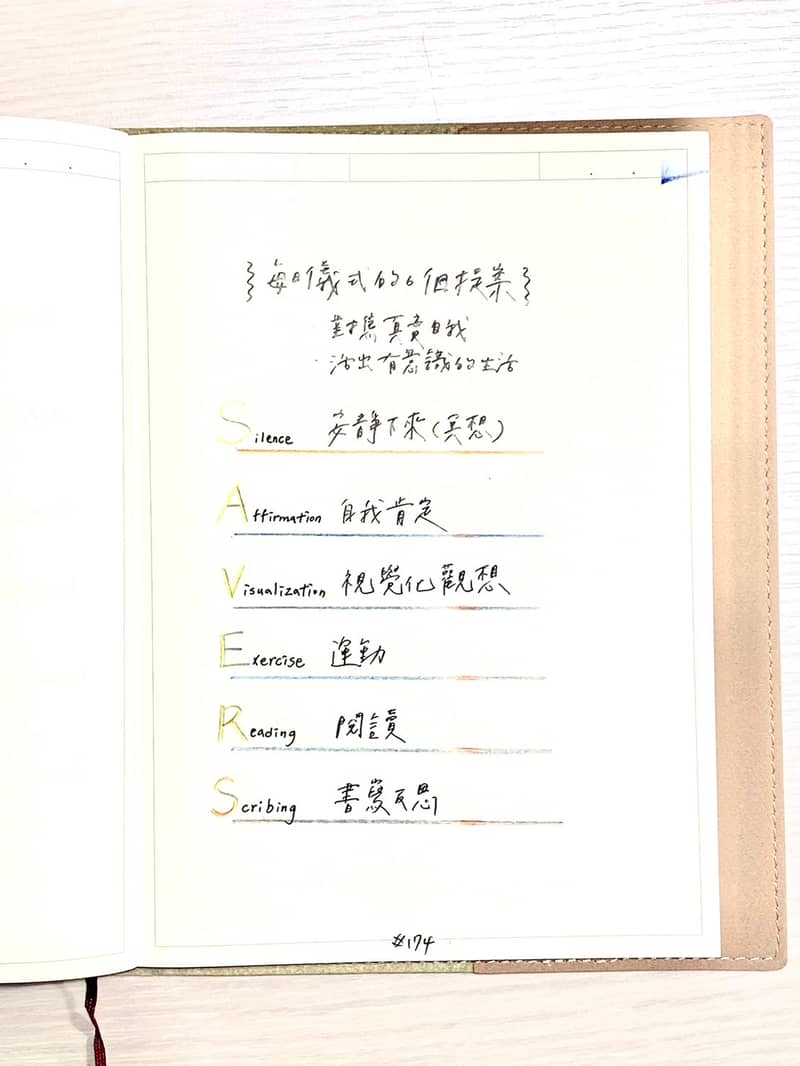 {每日儀式的6個提案}
對應真實自我
活出有意識的生活
Silence 安靜下來(冥想)
Affirmation 自我肯定
Visualization 視覺化觀想
Exercise 運動
Reading 閱讀
Scribing 書寫反思
#174